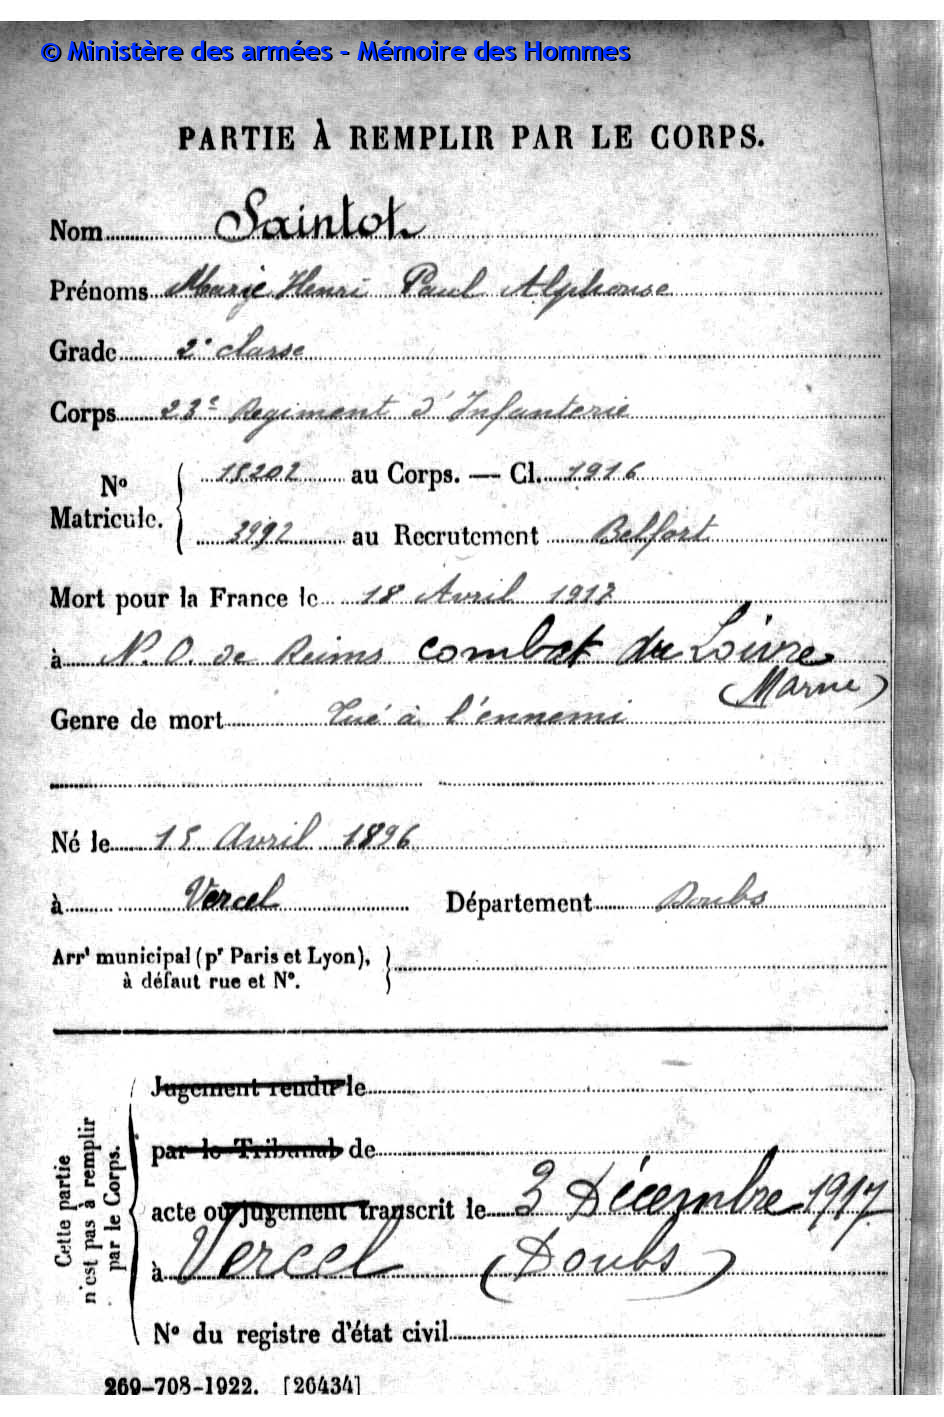 © Ministère des armées - Mémoire des Hommes
PARTIE À REMPLIR PAR LE CORPS.
Nom Saintot
Prénoms Marie Henri Paul Alphonse
Grade 2e classe
Corps 23e Regiment d'Infanterie
No Matricule. 18202 au Corps. — Cl. 1916
3992 au Recrutement Belfort
Mort pour la France le 18 Avril 1917
à N.O. de Reims combat du Loivre
(Marne)
Genre de mort Tué à l'ennemi
Né le 15 Avril 1896
à Vercel Département Doubs
Arrt municipal (pr Paris et Lyon),
à défaut rue et No.
Cette partie n'est pas à remplir par le Corps.
Jugement rendu le
par le Tribunal de
acte ou jugement transcrit le 3 Décembre 1917
à Vercel (Doubs)
No du registre d'état civil
269-708-1922. [26434]